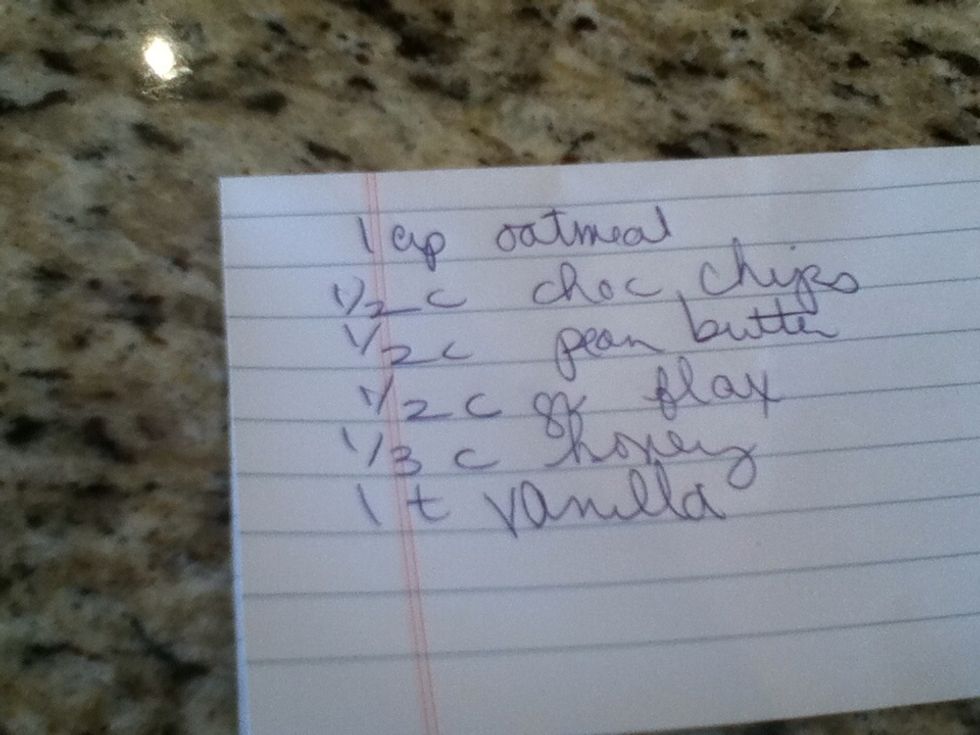 1 cup oatmeal
1/2 c choc chips
1/2 c pean butter
1/2 c gr flax
1/3 c honey
1 t vanilla